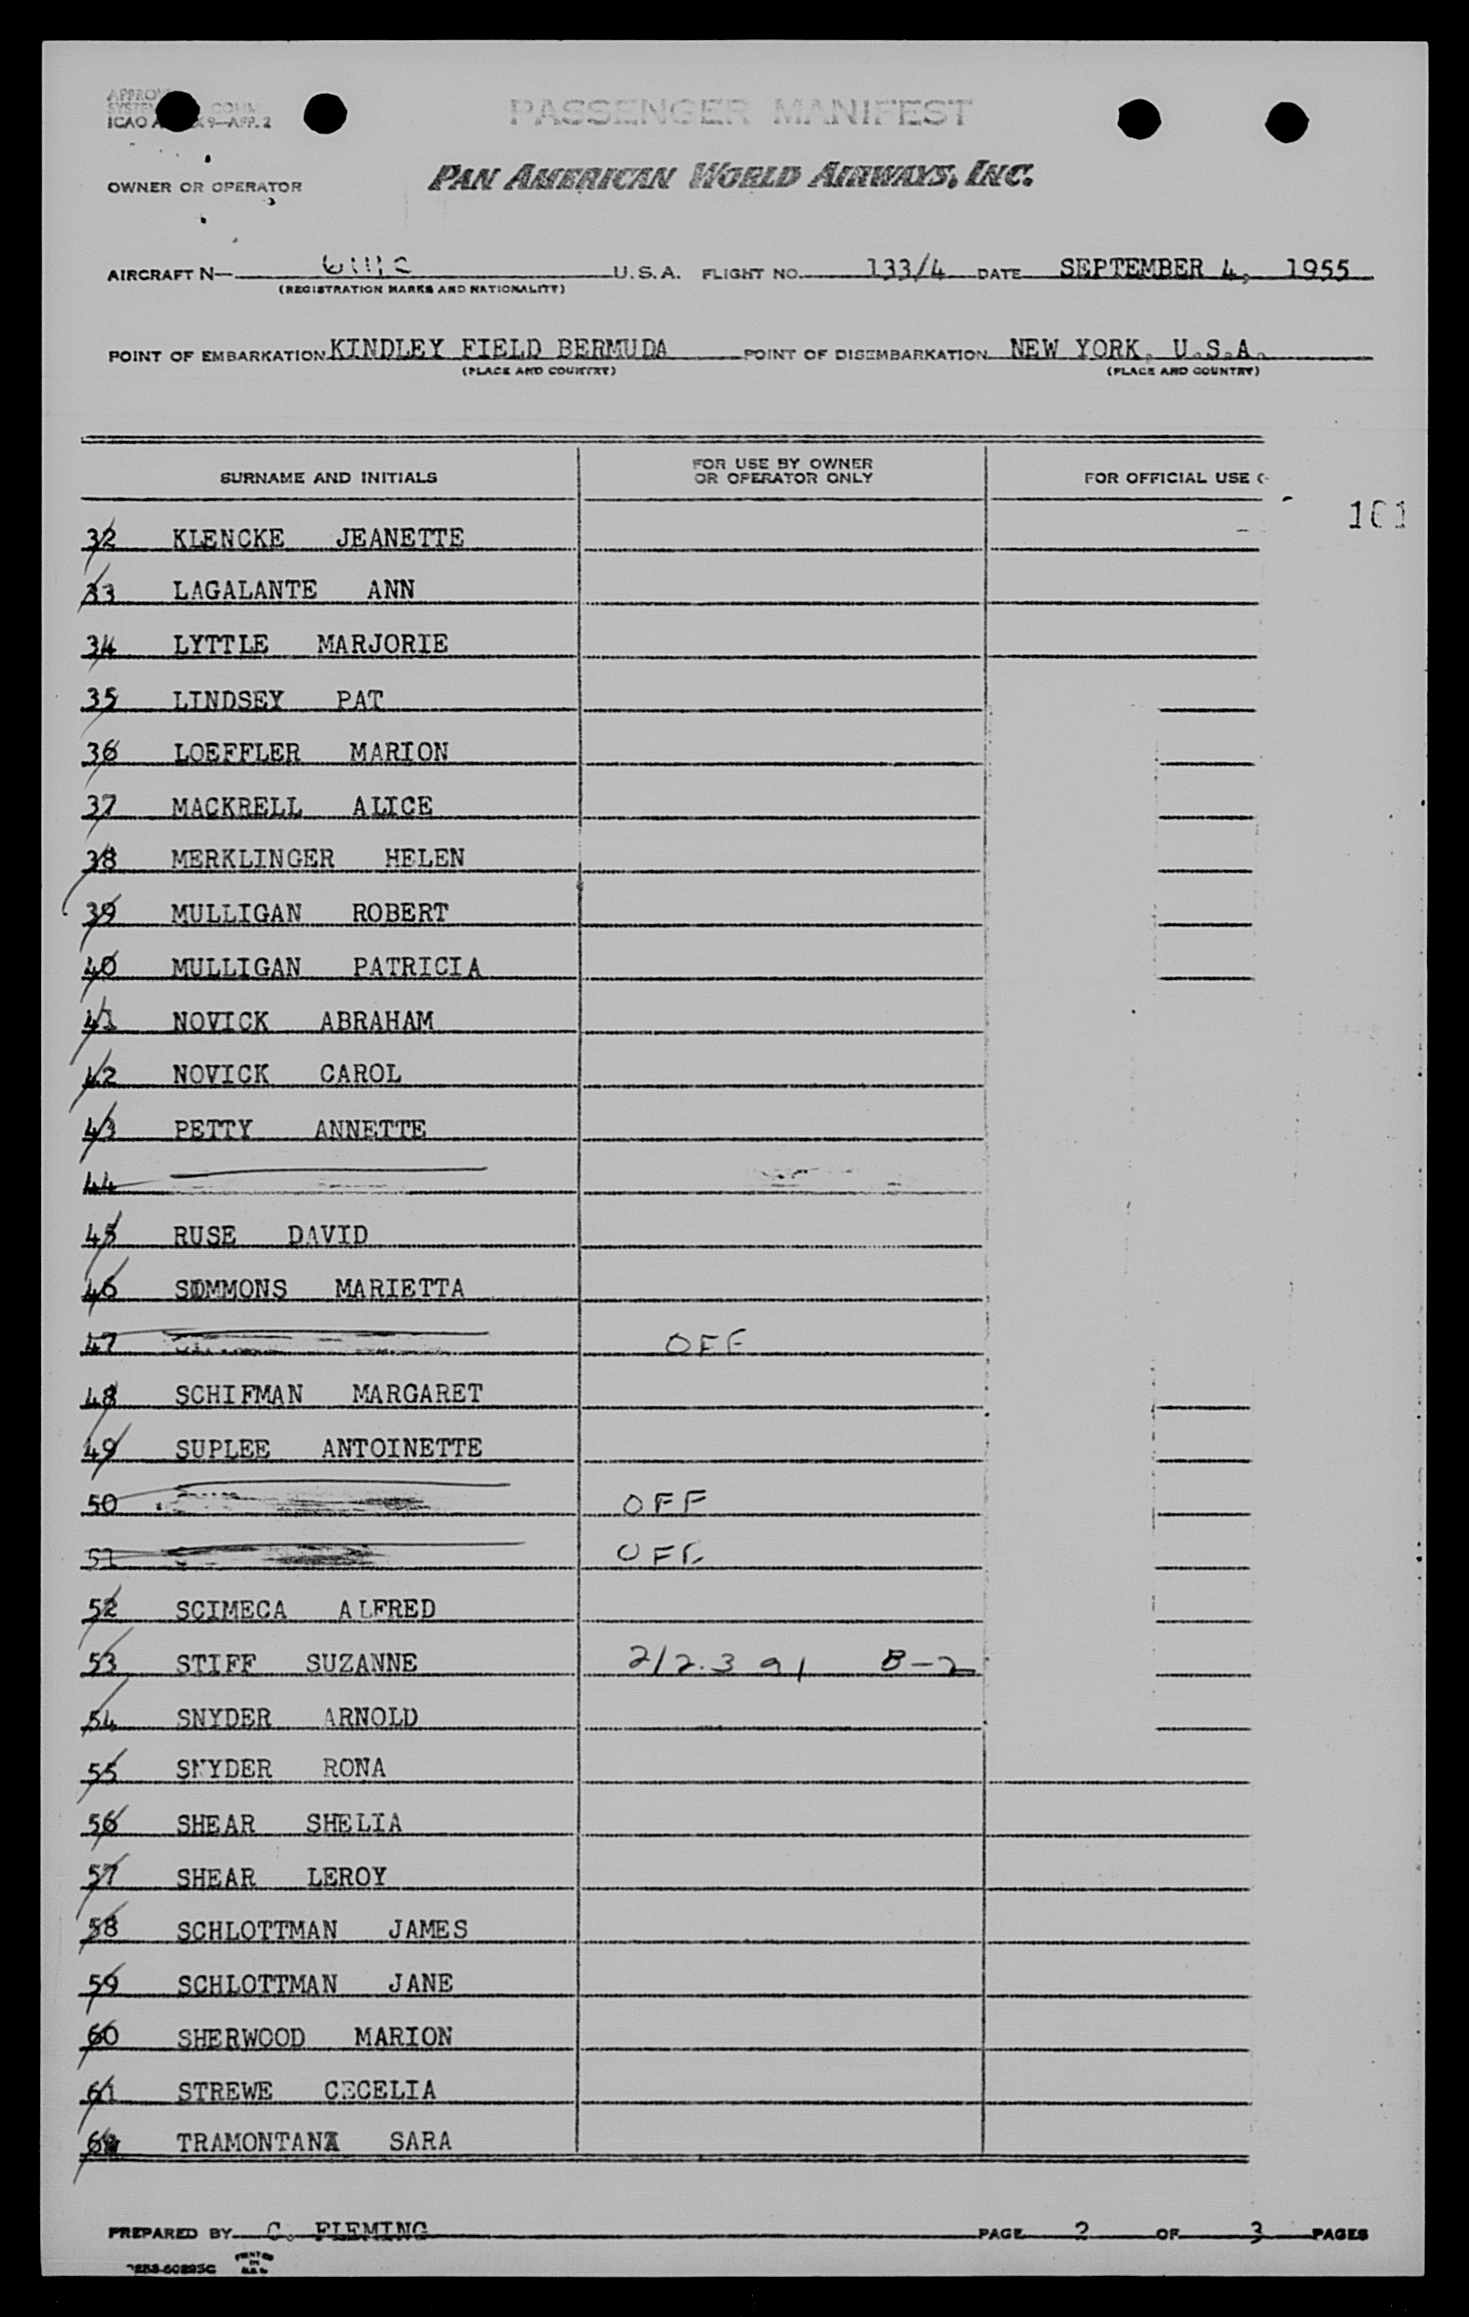 PASSENGER MANIFEST
ICAO
OWNER OR OPERATOR
PAN AMERICAN WORLD AIRWAYS, INC.
AIRCRAFT N— U.S.A. FLIGHT NO. 133/4 DATE SEPTEMBER 4, 1955
(REGISTRATION MARKS AND NATIONALITY)
POINT OF EMBARKATION KINDLEY FIELD BERMUDA POINT OF DISEMBARKATION NEW YORK, U.S.A.
(PLACE AND COUNTRY) (PLACE AND COUNTRY)
SURNAME AND INITIALS FOR USE BY OWNER OR OPERATOR ONLY FOR OFFICIAL USE
32 KLENCKE JEANETTE
33 LAGALANTE ANN
34 LYTTLE MARJORIE
35 LINDSEY PAT
36 LOEFFLER MARION
37 MACKRELL ALICE
38 MERKLINGER HELEN
39 MULLIGAN ROBERT
40 MULLIGAN PATRICIA
41 NOVICK ABRAHAM
42 NOVICK CAROL
43 PETTY ANNETTE
44
45 RUSE DAVID
46 MARIETTA
47 OFF
48 SCHIFMAN MARGARET
49 SUPLEE ANTOINETTE
50 OFF
51 OFF
52 SCIMECA ALFRED
53 STIFF SUZANNE 212.391 B-2
54 SNYDER ARNOLD
55 SNYDER RONA
56 SHEAR SHELIA
57 SHEAR LEROY
58 SCHLOTTMAN JAMES
59 SCHLOTTMAN JANE
60 SHERWOOD MARION
61 STREWE CECELIA
62 SARA
PREPARED BY C. FLEMING PAGE 2 OF 3 PAGES
PRINTED IN U.S.A.